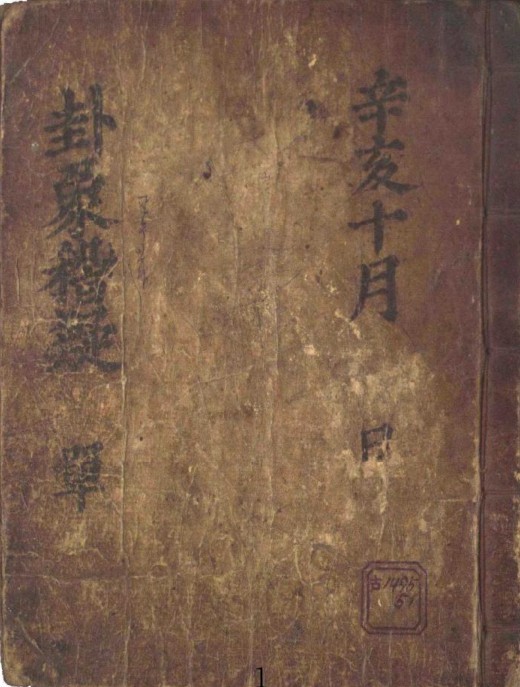 辛亥十月 日
卦象體建 單
古1495
51
1